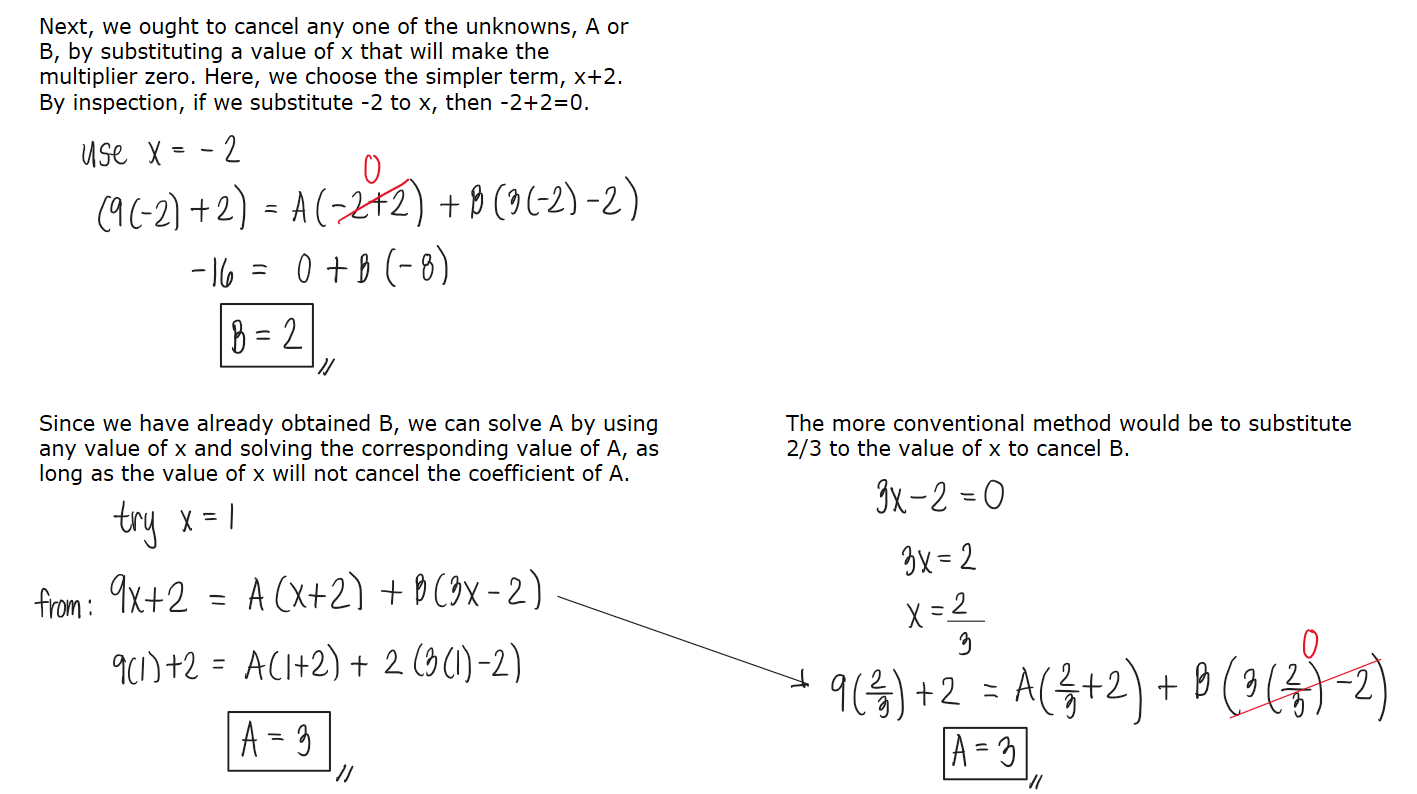 Next, we ought to cancel any one of the unknowns, A or
B, by substituting a value of x that will make the
multiplier zero. Here, we choose the simpler term, x+2.
By inspection, if we substitute -2 to x, then -2+2=0.
use x = -2
0
(9(-2)+2) = A(-2+2) + B(3(-2)-2)
-16 = 0 + B(-8)
B = 2 //
Since we have already obtained B, we can solve A by using
any value of x and solving the corresponding value of A, as
long as the value of x will not cancel the coefficient of A.
try x = 1
from: 9x+2 = A(x+2) + B(3x-2)
9(1)+2 = A(1+2) + 2(3(1)-2)
A = 3 //
The more conventional method would be to substitute
2/3 to the value of x to cancel B.
3x-2 = 0
3x = 2
x = 2/3
0
9(2/3)+2 = A(2/3+2) + B(3(2/3)-2)
A = 3 //